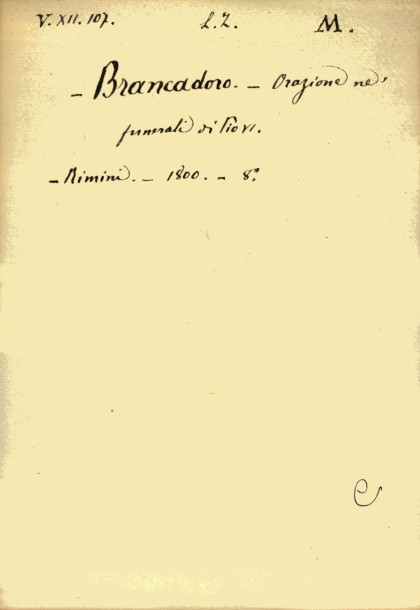 V. XII. 107. L. Z. M.
– Brancadoro. – Orazione ne'
funerali di Pio VI.
– Rimini. – 1800. – 8.º